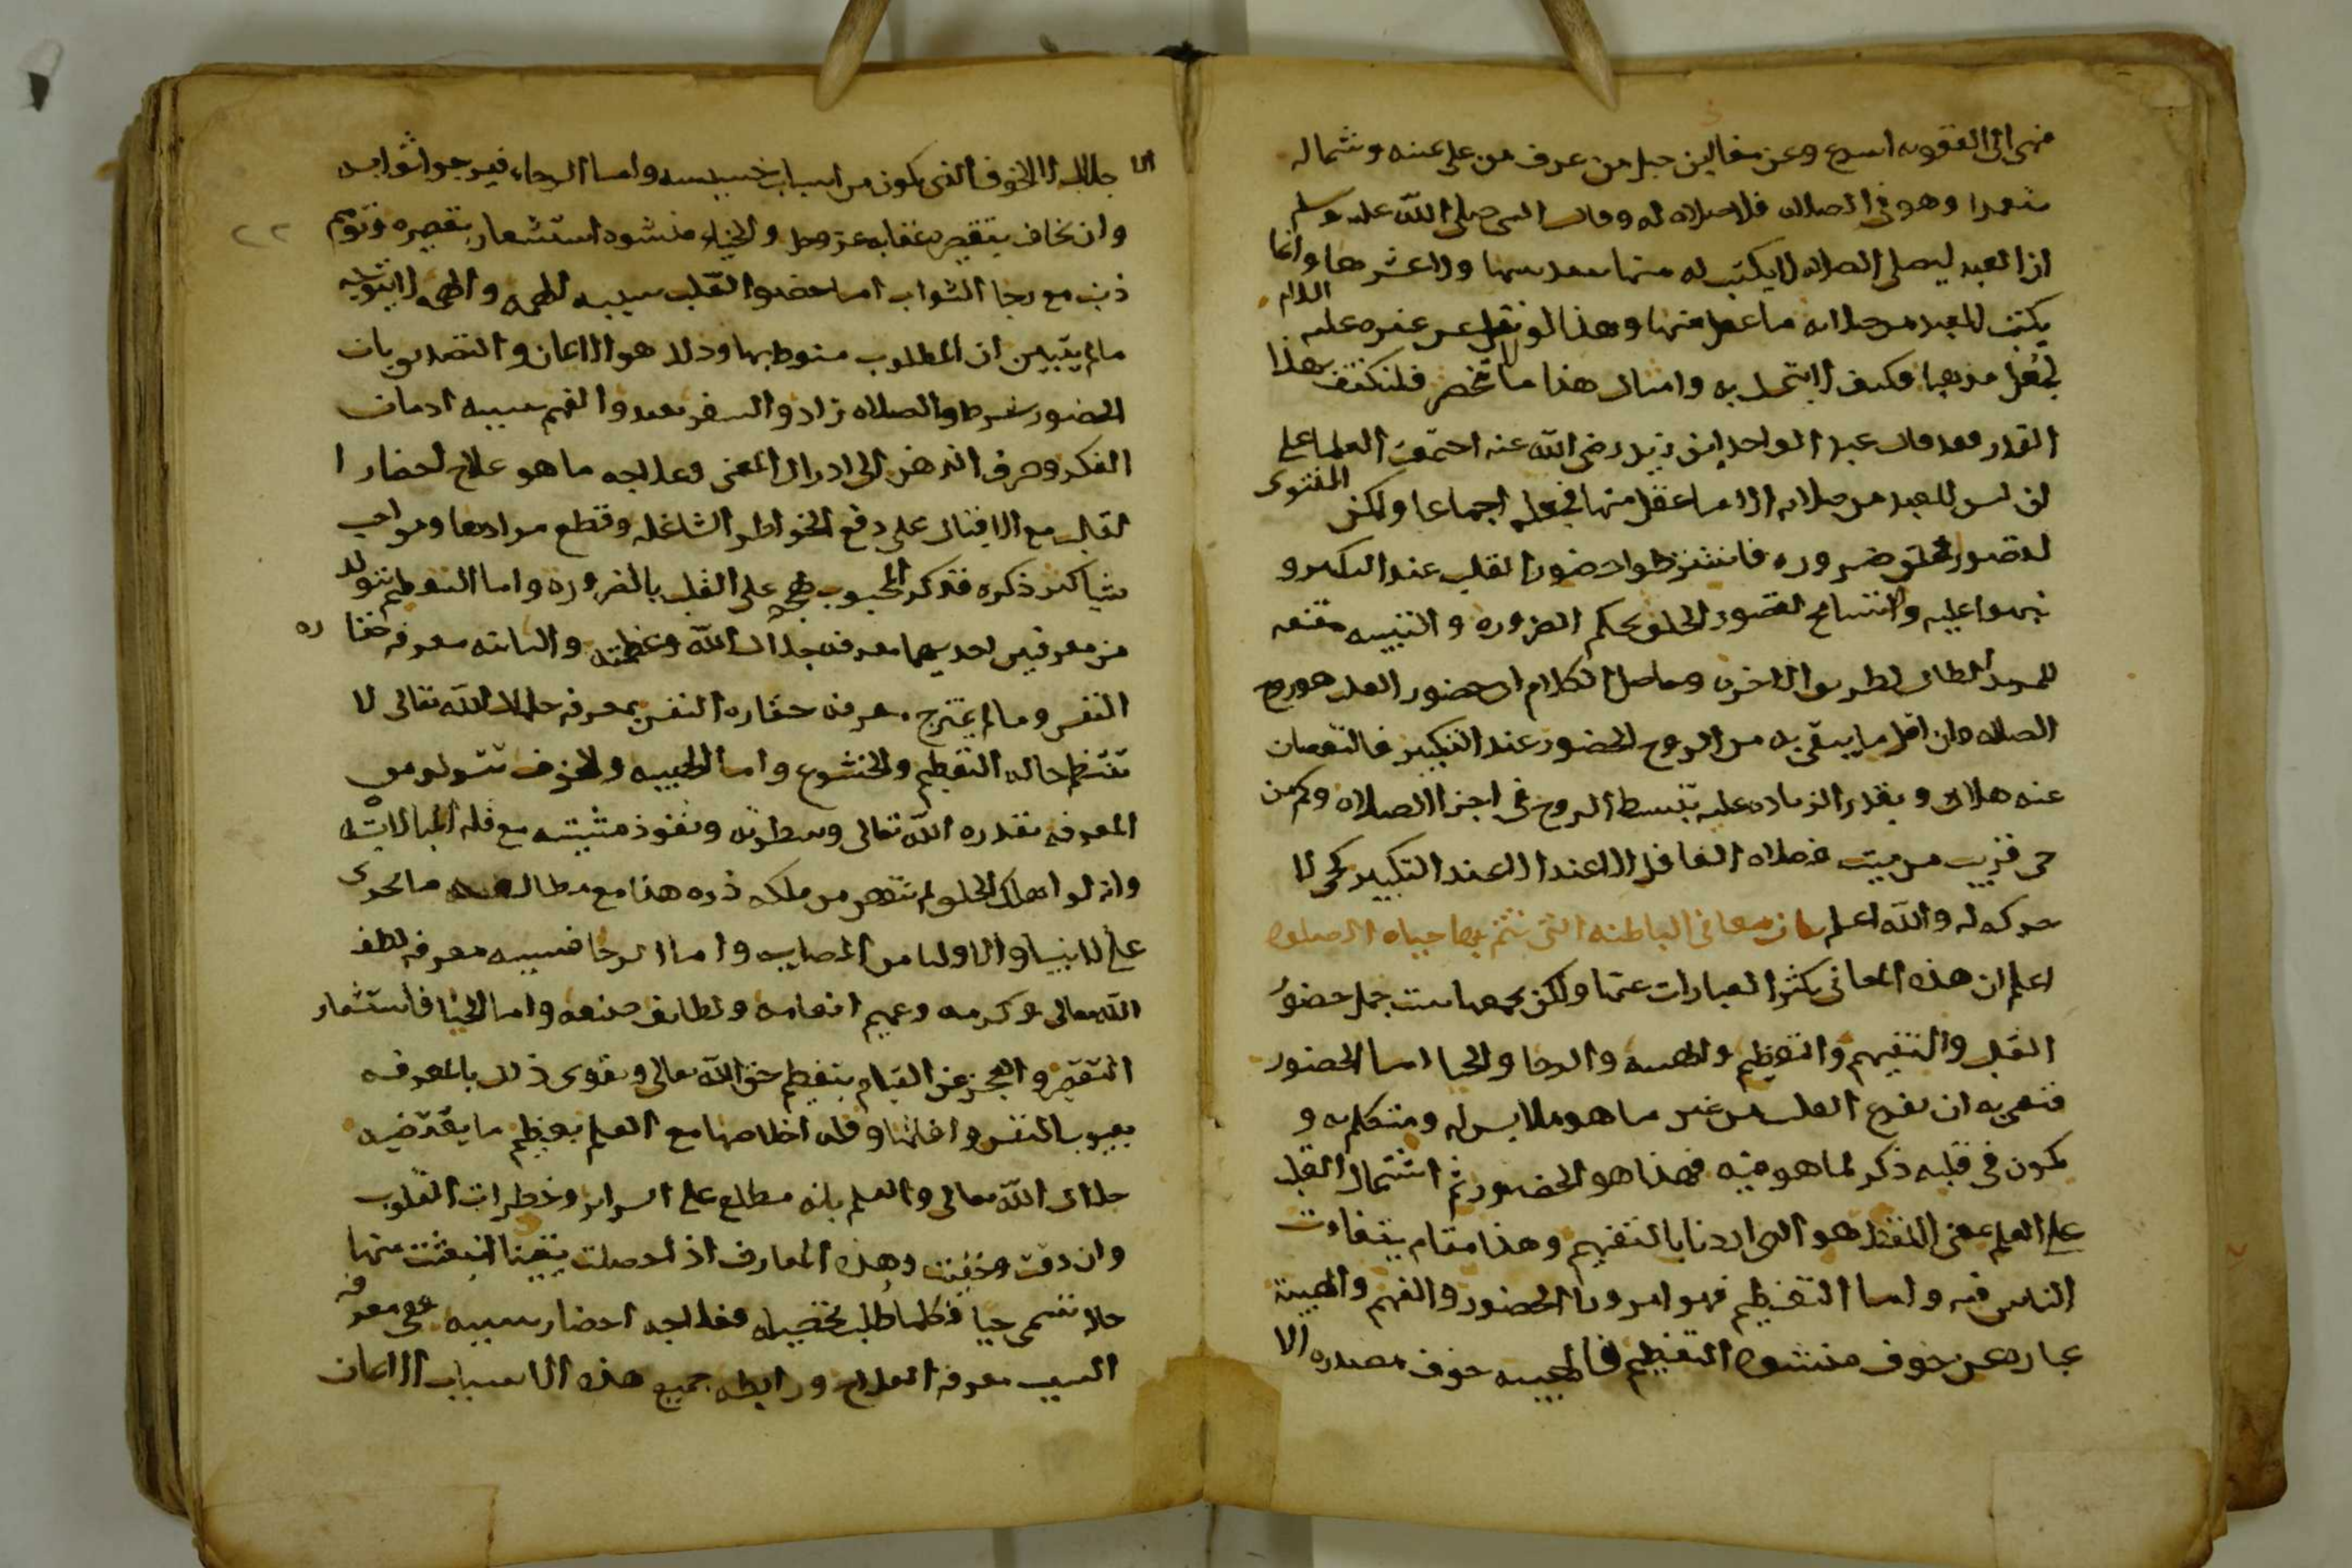 فهى الى العقوبه اسرع وعن معاذ بن جبل من عرف من على يمينه وشماله
متعمدا وهو فى الصلاه فلا صلاه له وقال النبى صلى الله عليه وسلم
ان العبد ليصلى الصلاه لا يكتب له منها سدسها ولا عشرها وانما
يكتب للعبد من صلاته ما عقل منها وهذا لو نقل عن غيره عليه السلام
لجعل مذهبا فكيف لا يتمسك به وامثال هذا ما تحصر فلنكتف بهذا
القدر فقد قال عبد الواحد ابن زيد رضى الله عنه اجتمعت العلما على
ان ليس للعبد من صلاته الا ما عقل منها فجعله اجماعا ولكن المفتوى
لقصور الخلق ضروره فاشترطوا حضور القلب عند التكبير و
نبهوا عليه والتسامح لقصور الخلق بحكم الضروره والتنبيه مقنعه
للمريد الطالب لطريق الاخره وحاصل الكلام ان حضور القلب هو روح
الصلاه وان اقل ما يبقى به من الروح الحضور عند التكبير فالنقصان
عنه هلاك وبقدر الزياده عليه تنبسط الروح فى اجزا الصلاه وكم من
حى قريب من ميت فصلاه الغافل الا عند التكبير كحى لا
حركه له والله اعلم بيان معانى الباطنه التى تتم بها حياه الصلوه
اعلم ان هذه المعانى يكثر العبارات عنها ولكن يجمعها ست جمل حضور
القلب والتفهم والتعظيم والهيبه والرجا والحيا اما الحضور
فنعنى به ان يفرغ القلب من غير ما هو ملابس له ومتكلم به و
يكون فى قلبه ذكر لما هو فيه فهذا هو الحضور ثم اشتمال القلب
على العلم بمعنى اللفظ هو الذى اردنا بالتفهم وهذا مقام يتفاوت
الناس فيه واما التعظيم فهو امر ورا الحضور والفهم والهيبة
عباره عن خوف منشوه التعظيم فالهيبه خوف مصدره الا
الا جلال لا الخوف الذى يكون من اسباب خسيسه واما الرجاء فيرجوا ثوابه
وان يخاف بتقصيره عقابه عز وجل والحياء منشوه استشعار تقصيره وتوهم
ذنب مع رجا الثواب اما حضور القلب سببه الهمه والهمه لا تتوجه
ما لم يتبين ان المطلوب منوط بها وذلك هو الايمان والتصديق بان
الحضور شرط والصلاه زاد والسفر بعيد والفهم سببه ادمان
الفكر وصرف الذهن الى ادراك المعنى وعلاجه ما هو علاج احضار ا
لقلب مع الاقبال على دفع الخواطر الشاغله وقطع موادها ومن احب
شيا اكثر ذكره فذكر المحبوب يهجم على القلب بالضروره واما التعظيم تتولد
من معرفتين احديهما معرفه جلال الله وعظمته والثانيه معرفه حقا ره
النفس وما لم يمتزج معرفه حقاره النفس بمعرفه جلال الله تعالى لا
تنتظم حاله التعظيم والخشوع واما الهيبه والخوف تتولد من
المعرفه بقدره الله تعالى وسطوته ونفوذ مشيته مع قله المبالات به
وانه لو اهلك الخلق لم تنقص من ملكه ذره هذا مع مطالعه ما يجرى
على الانبيا والاوليا من المصايب واما الرجا فسببه معرفه لطف
الله تعالى وكرمه وعميم انعامه ولطايف صنعه واما الحيا فاستشعار
التقصير والعجز عن القيام بتعظيم حق الله تعالى ويقوى ذلك بالمعرفه
بعيوب النفس وافاتها وقله اخلاصها مع العلم بعظيم ما يقتضيه
جلال الله تعالى والعلم بانه مطلع على السراير وخطرات القلوب
وان دقت وخفيت وهذه المعارف اذا حصلت يقينا انبعثت منها
حاله تسمى حيا فكلما طلب تحصيله فعلاجه احضار سببه ففى معرفه
السبب معرفه العلاج ورابطه جميع هذه الاسباب الايمان
٢٢